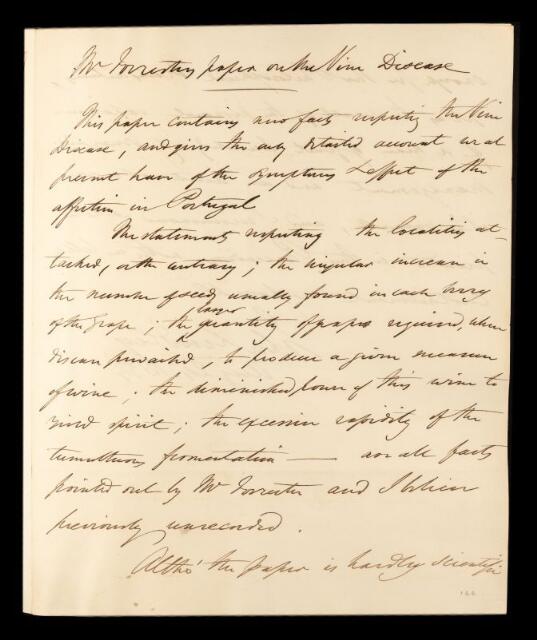 Mr Forrester's paper on the Vine Disease
This paper contains new facts respecting the Vine
Disease, and gives the only detailed account we at
present have of the symptoms & effects of the
affection in Portugal
The statements respecting the localities at-
tacked, or the contrary; the singular increase in
the number of seeds usually found in each berry
of the Grape; the larger quantity of grapes required, where
disease prevailed, to produce a given measure
of wine; the diminished power of this wine to
yield spirit; the excessive rapidity of the
tumultuous fermentation — are all facts
pointed out by Mr Forrester and I believe
previously unrecorded.
Altho' the paper is hardly scientific